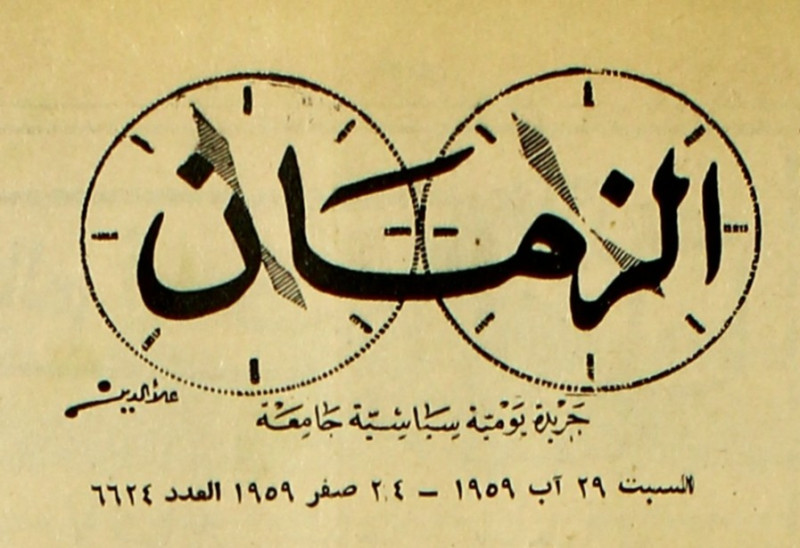 الزمان
علاء الدين
جَريْدة يَوْميّة سيَاسْيّة جَامِعَة
السبت ٢٩ آب ١٩٥٩ – ٢٤ صفر ١٩٥٩ العدد ٦٦٢٤